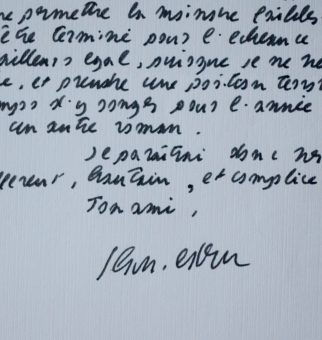 me permettre la moindre faibles
être terminé pour l'échéance
ailleurs égal, puisque je ne
, et prendre une position
temps d'y songer pour l'année
un autre roman.
Je paraîtrai donc
, hautain, et complice
Ton ami,